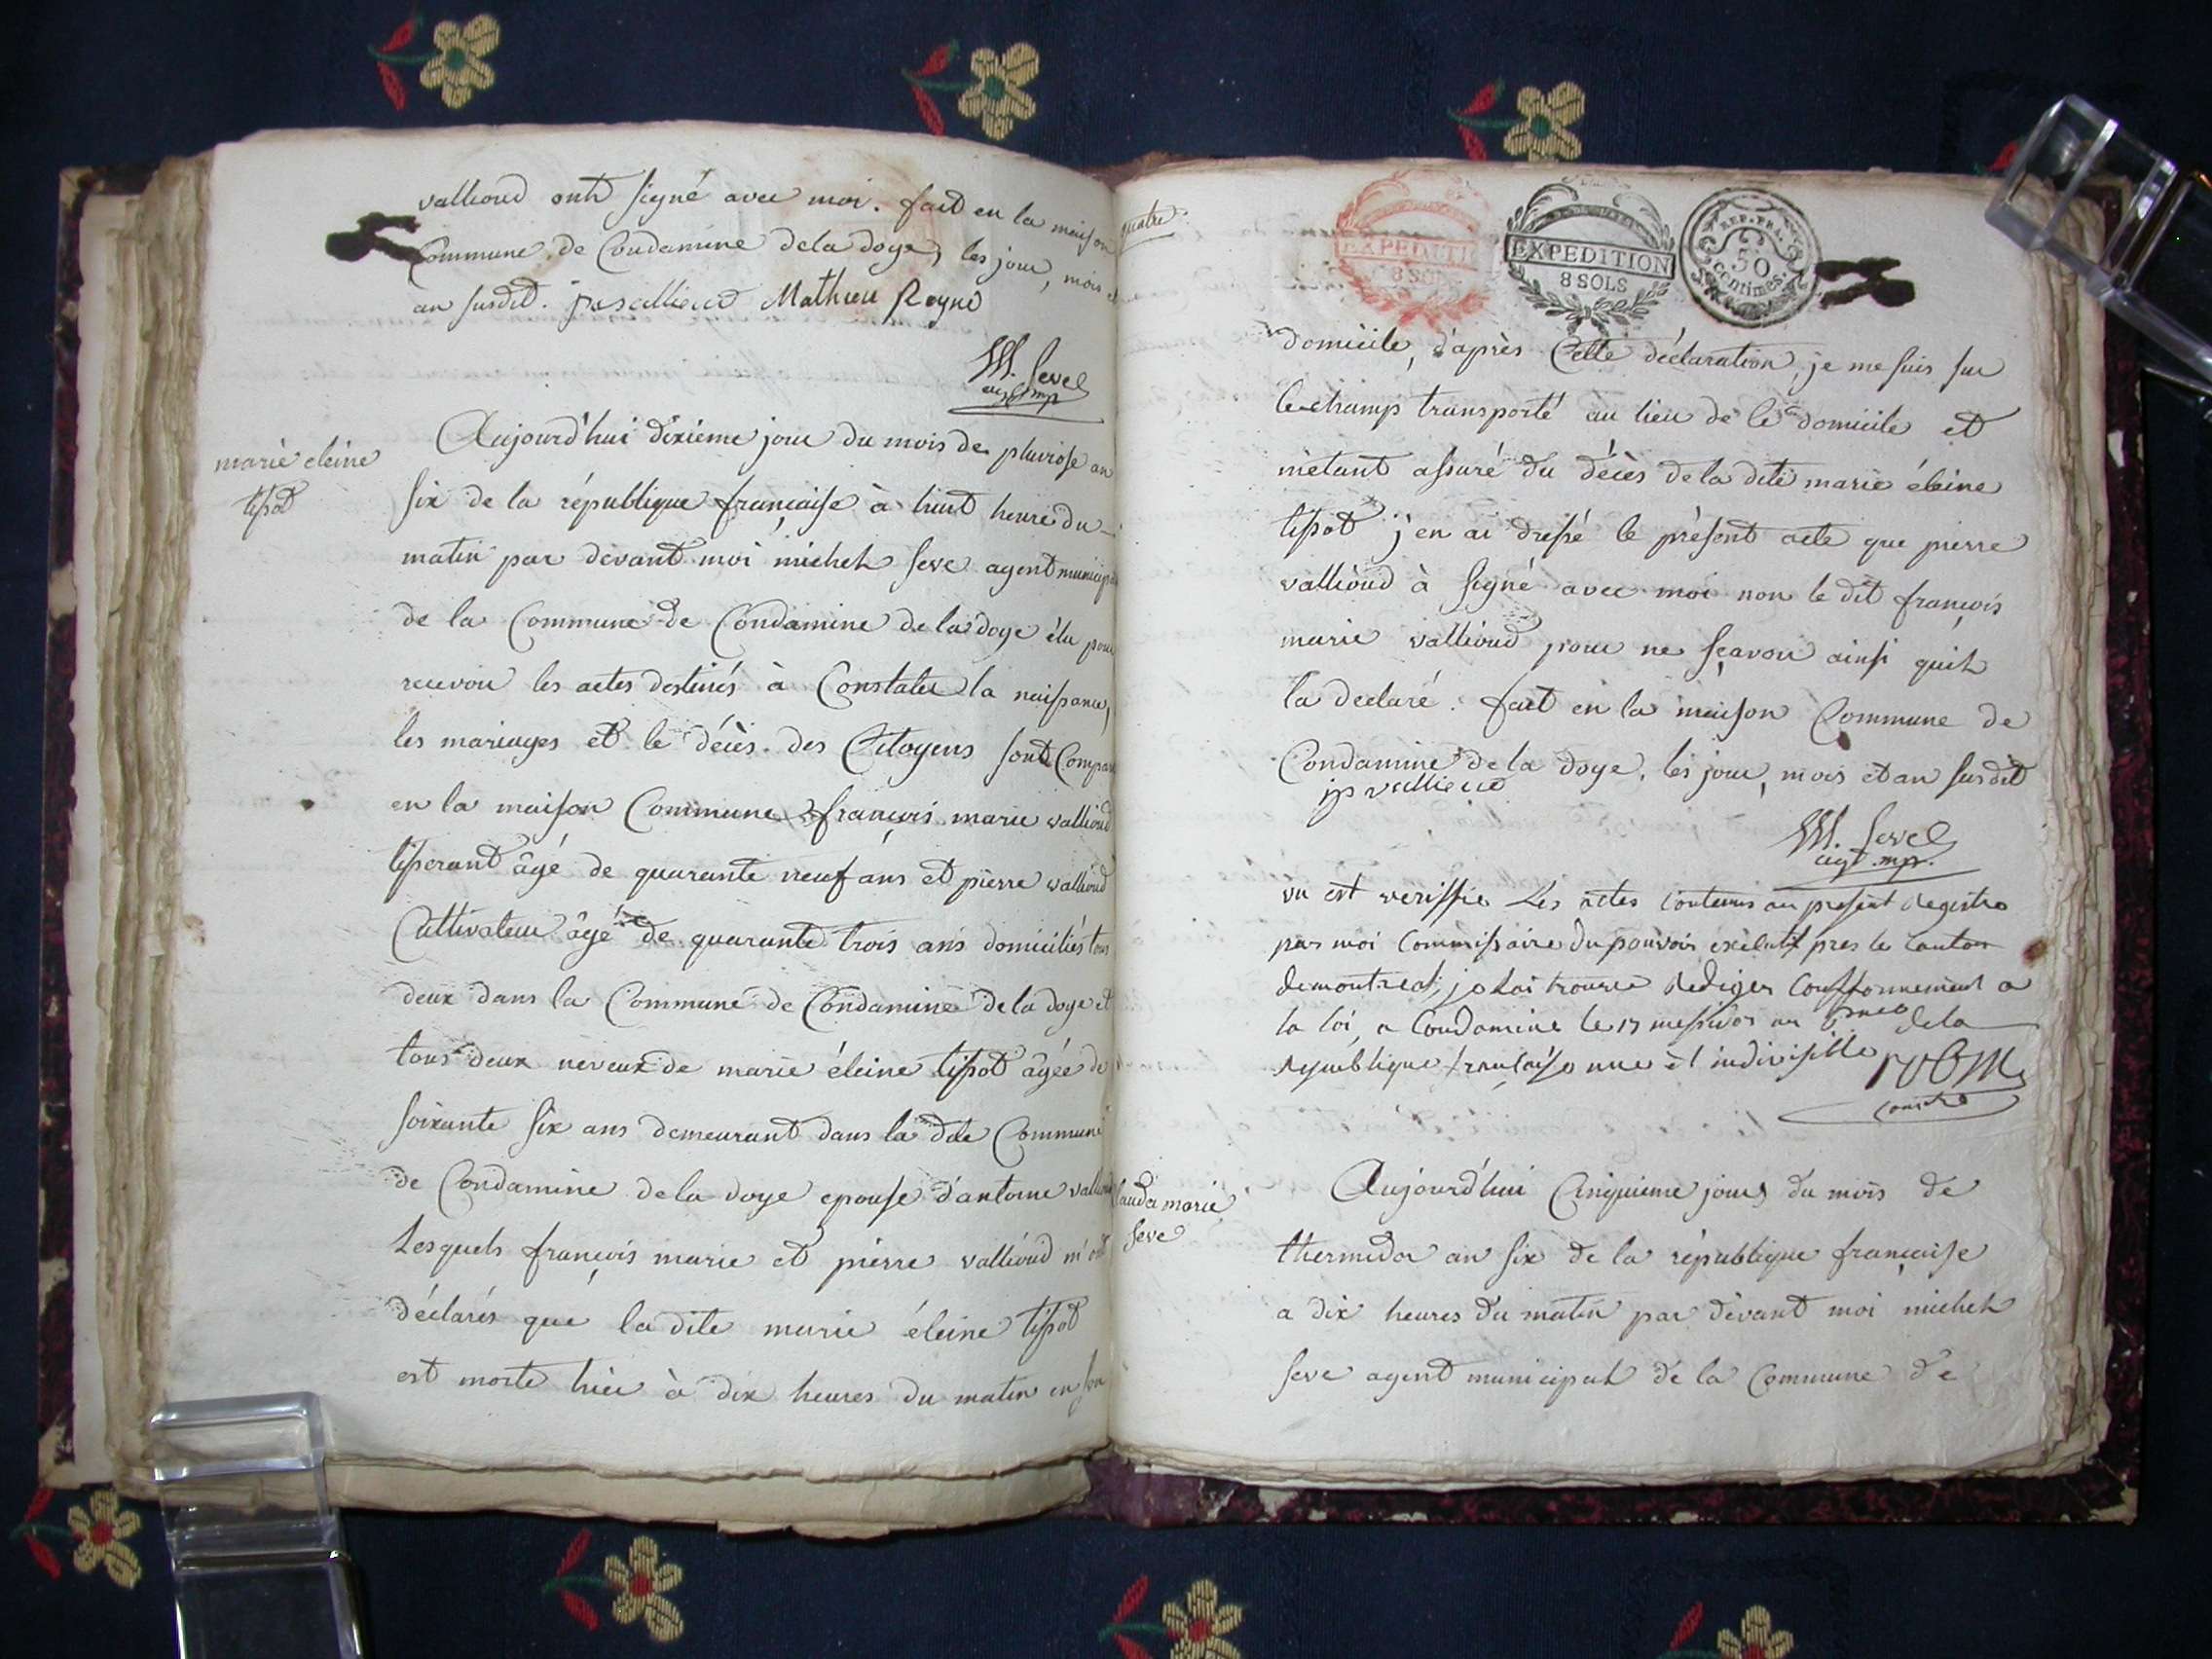 vallioud ont signé avec moi. fait en la maison
Commune de Condamine de la doye, les jour, mois et
an susdit. Mathieu Reyne
M. Seve
agt mp
marie eleine
tisot
Aujourd'hui dixieme jour du mois de pluviose an
six de la république française à huit heure du
matin par devant moi michel seve agent municipal
de la Commune de Condamine de la doye élu pour
recevoir les actes destinés à Constater la naissance,
les mariages et le décès des Citoyens sont Comparu
en la maison Commune françois marie vallioud
tisserant âgé de quarante neuf ans et pierre vallioud
Cultivateur âgé de quarante trois ans domiciliés tous
deux dans la Commune de Condamine de la doye et
tous deux neveux de marie éleine tisot âgée de
soixante six ans demeurant dans la dite Commune
de Condamine de la doye epouse d'antoine vallioud
Lesquels françois marie et pierre vallioud m'ont
déclarés que la dite marie éleine tisot
est morte hier à dix heures du matin en son
quatre
EXPEDITION
8 SOLS
EXPEDITION
8 SOLS
REP. FRA.
50
centimes
domicile, d'après Cette déclaration, je me suis sur
le champ transporté au lieu de ce domicile et
m'etant assuré du décès de la dite marie éleine
tisot j'en ai dressé le présent acte que pierre
vallioud à signé avec moi non le dit françois
marie vallioud pour ne sçavoir ainsi quil
la declaré. fait en la maison Commune de
Condamine de la doye, les jour, mois et an susdit
jp vallioud
M. Seve
agt mp.
vu est veriffie Les actes contenus au present Registre
par moi Commissaire du pouvoir exécutif pres le canton
de montreal, je lai trouvee Rediger Conffonnement a
la loi, a Condamine le 17 messidor an 6me de la
Republique française une et indivisible
Clauda marie
seve
Aujourd'hui Cinquieme jour du mois de
thermidor an six de la république française
a dix heures du matin par devant moi michel
seve agent municipal de la Commune de